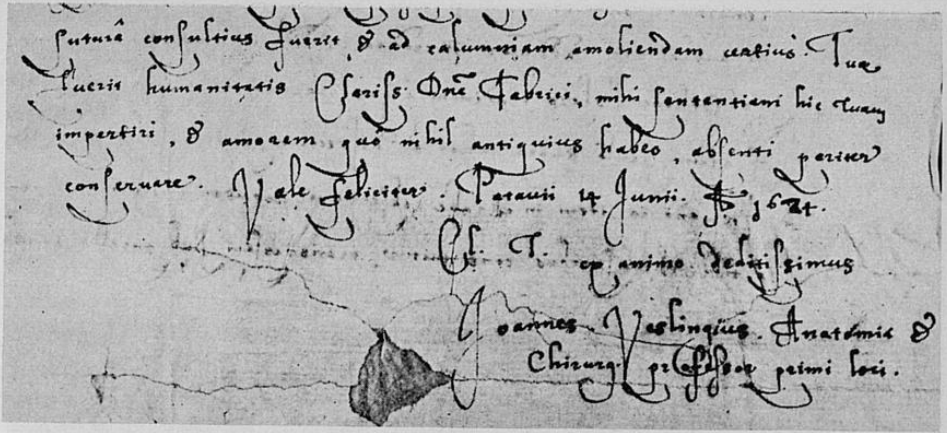 futurā consultius fuerit & ad calumniam amoliendam cautius. Tuæ
fuerit humanitatis Clariss. Dne. Fabrici, mihi sententiam hic tuam
impertiri, & amorem, quô nihil antiquius habeo, absenti pariter
conservare. Vale feliciter. Patavii 14 Junii. Aō 1634.
Cl. T. ex animo deditissimus
Joannes Veslingius. Anatomiæ &
Chirurg. professor primi loci.